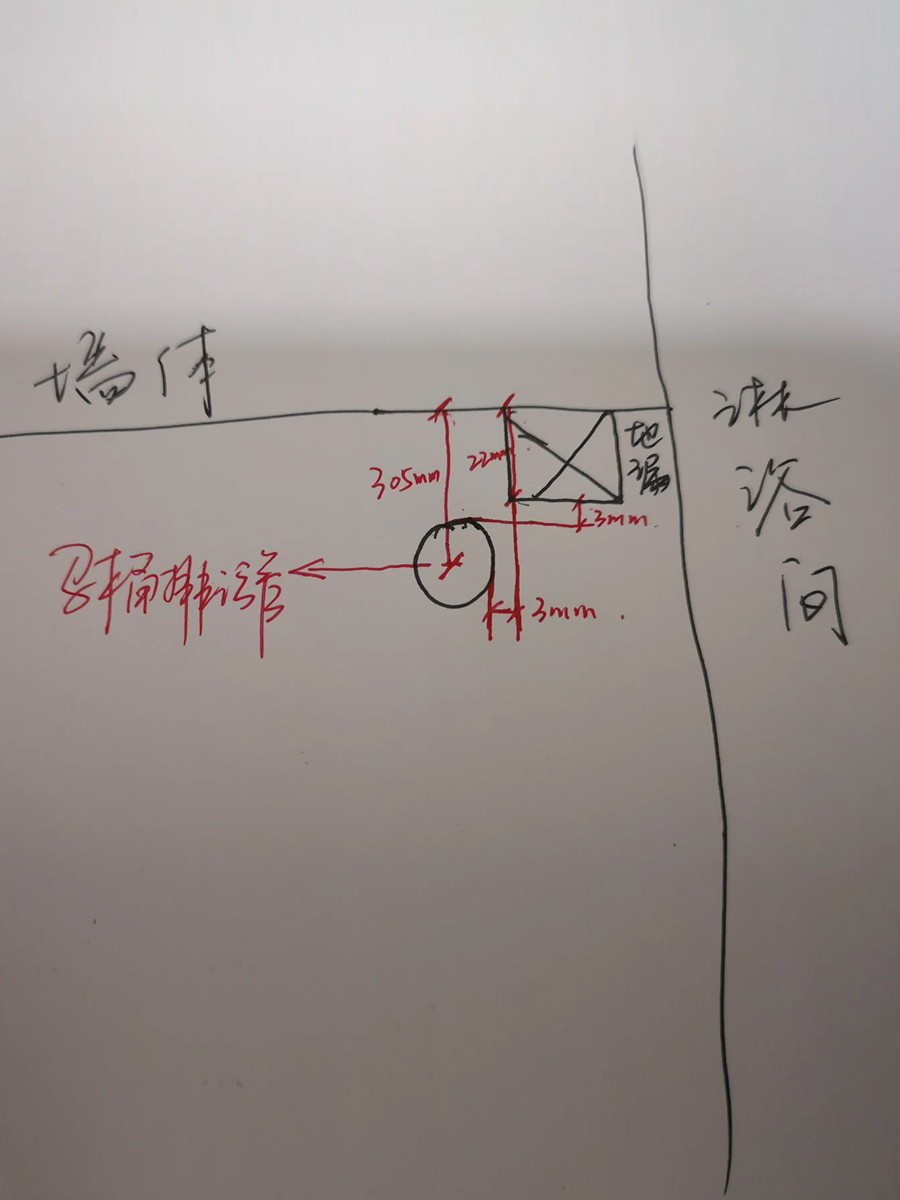 墙体
淋
浴
间
地
漏
305mm
22mm
3mm.
马桶排污管
3mm.